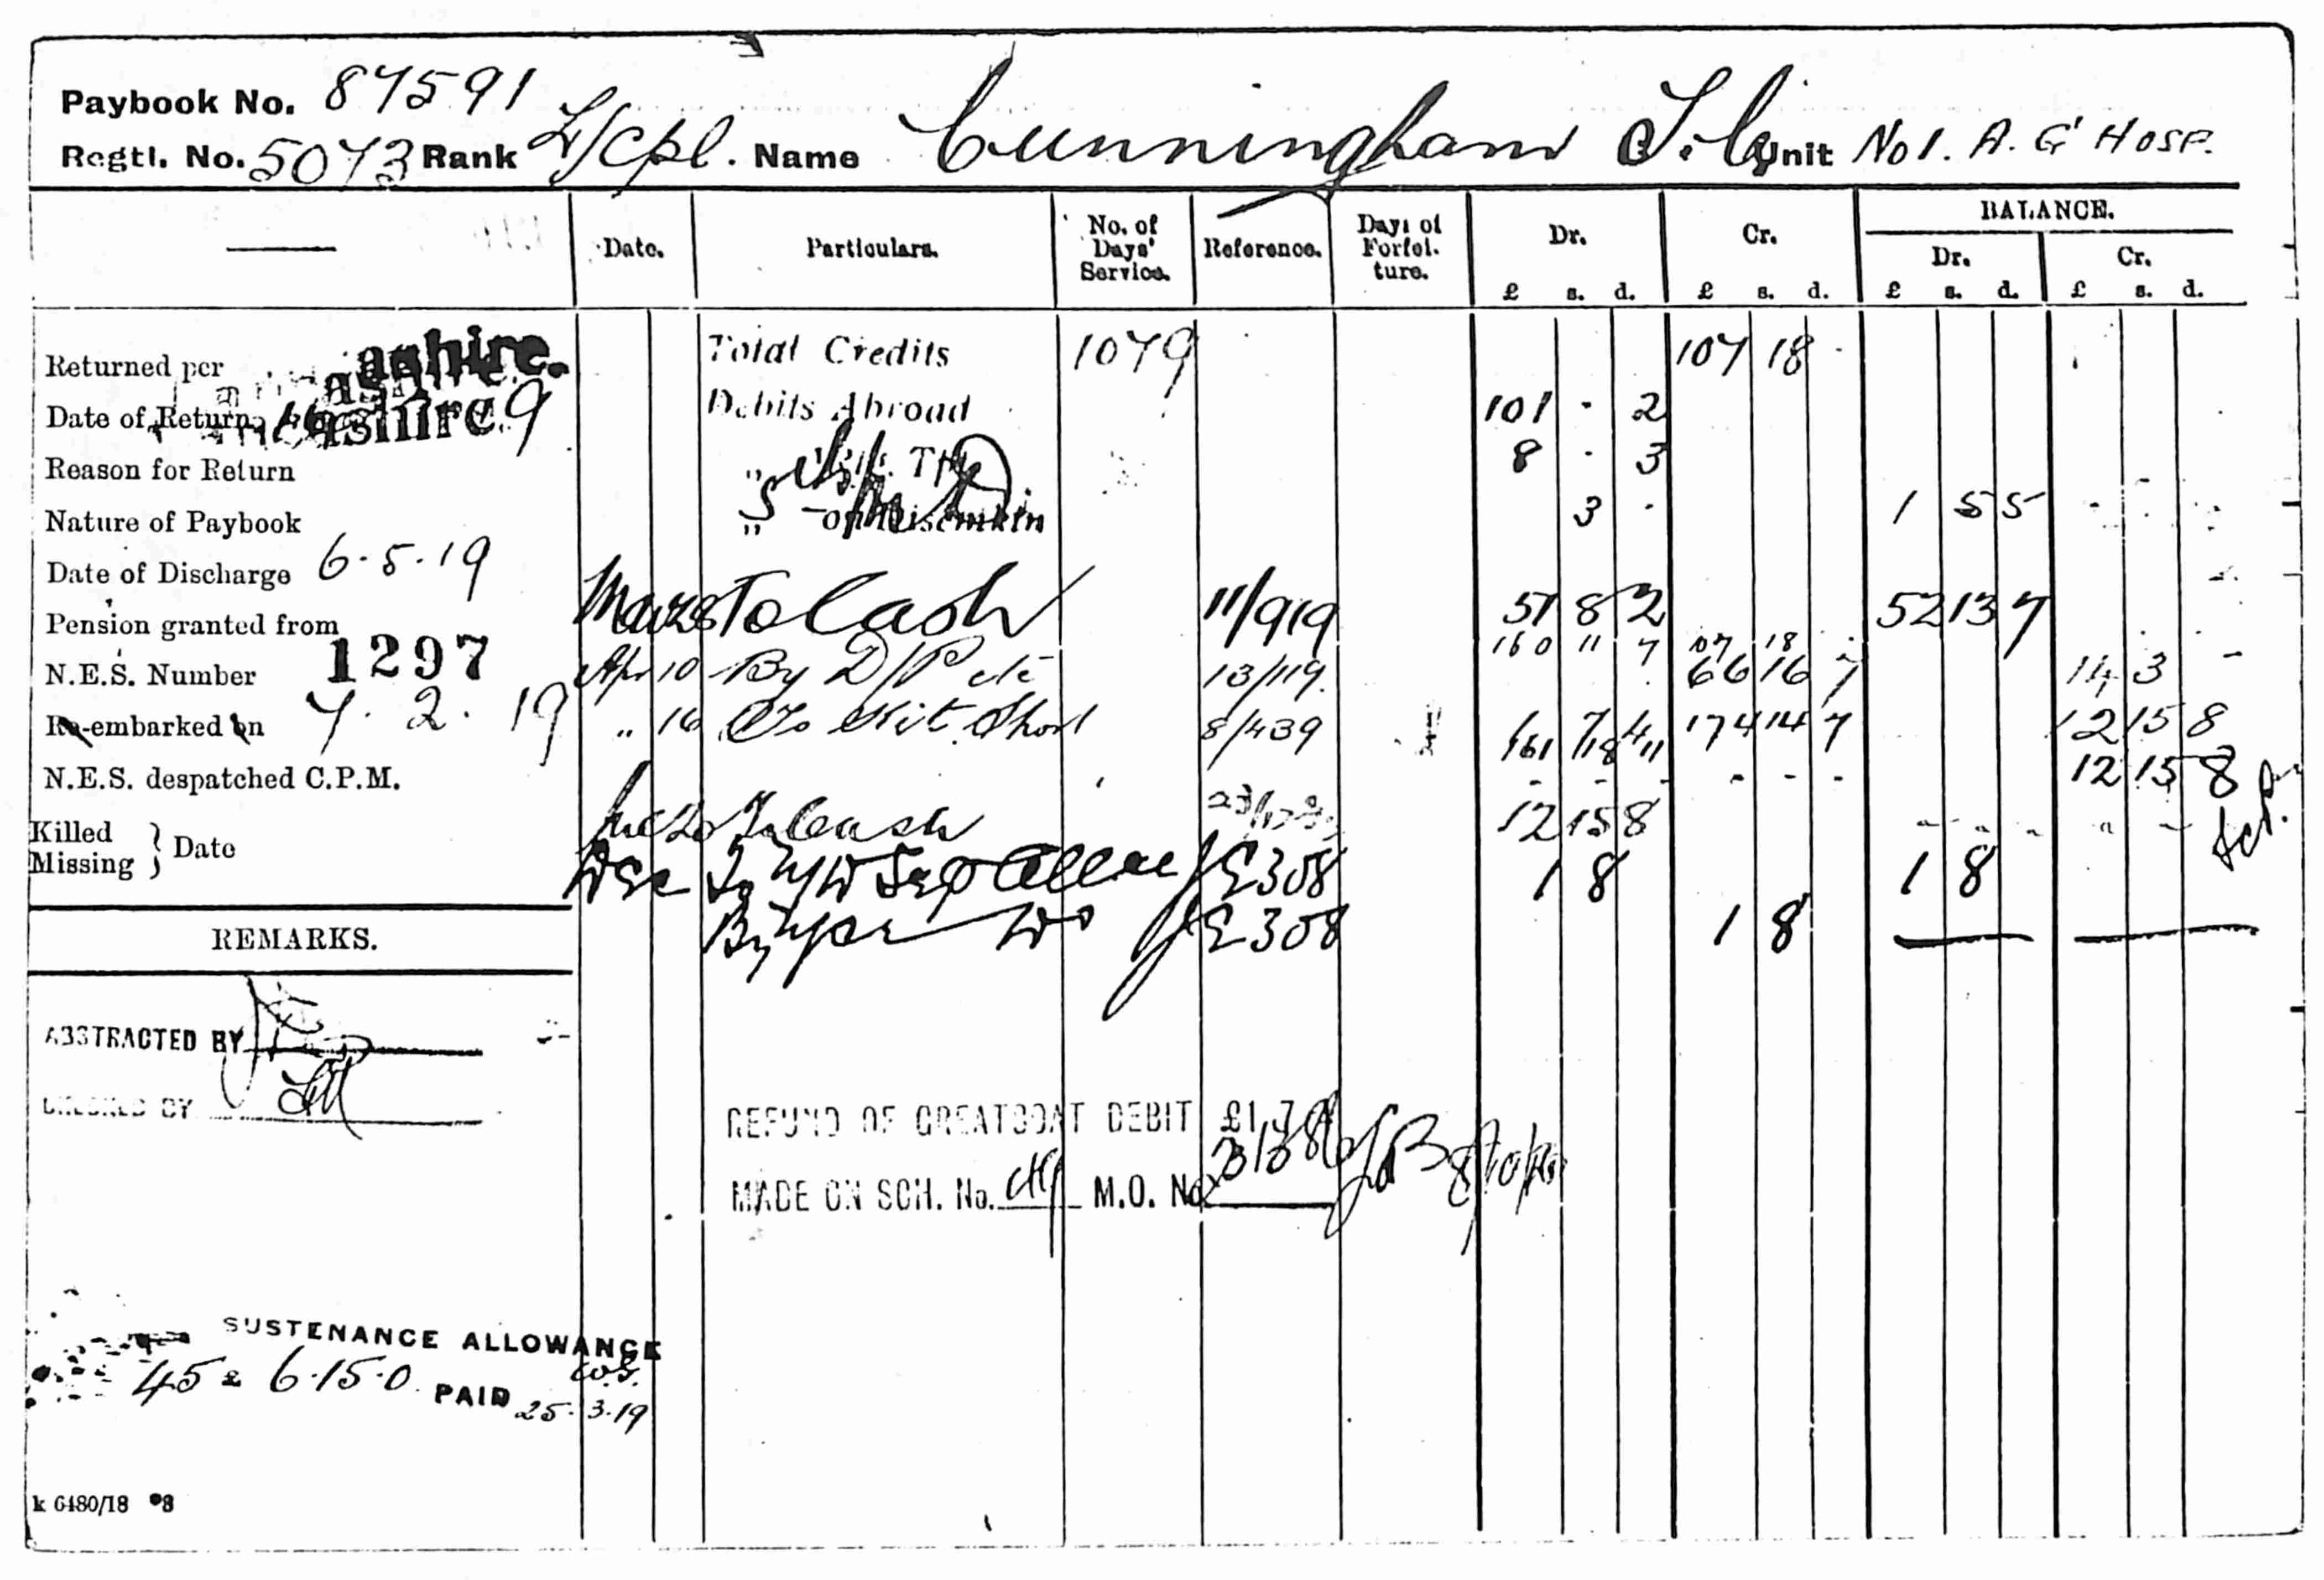 Paybook No. 87591
Regtl. No. 5073 Rank L/Cpl. Name Cunningham Unit No 1. A. G' HOSP.
Date. Particulars. No. of Days' Service. Reference. Days of Forfei-ture. Dr. Cr. BALANCE.
Dr. Cr.
£ s. d. £ s. d. £ s. d. £ s. d.
Returned per ashire. Total Credits 1079 107 18 -
Date of Return 9 Debits Abroad 101 - 2
Reason for Return 8 - 3
Nature of Paybook 3 - 1 5 5
Date of Discharge 6.5.19
Pension granted from To Cash 11/919 51 8 2 52 13 7
160 11 7 107 18 -
N.E.S. Number 1297 Apr 10 By D/P etc 13/119. 66 16 7 14 3 -
Re-embarked on 7. 2. 19 " 16 To Kit Short 8/439 1 7 4 174 14 7 12 15 8
161 18 11
N.E.S. despatched C.P.M. - - - - - - 12 15 8
Killed Missing } Date To Cash 12 15 8
Dec To 308 1 8 1 8
By 308 1 8
REMARKS.
ABSTRACTED BY
CHECKED BY
REFUND OF GREATCOAT DEBIT £1.7
MADE ON SCH. No. M.O. No
SUSTENANCE ALLOWANCE
45 £ 6.15.0 PAID 25.3.19
k 6480/18